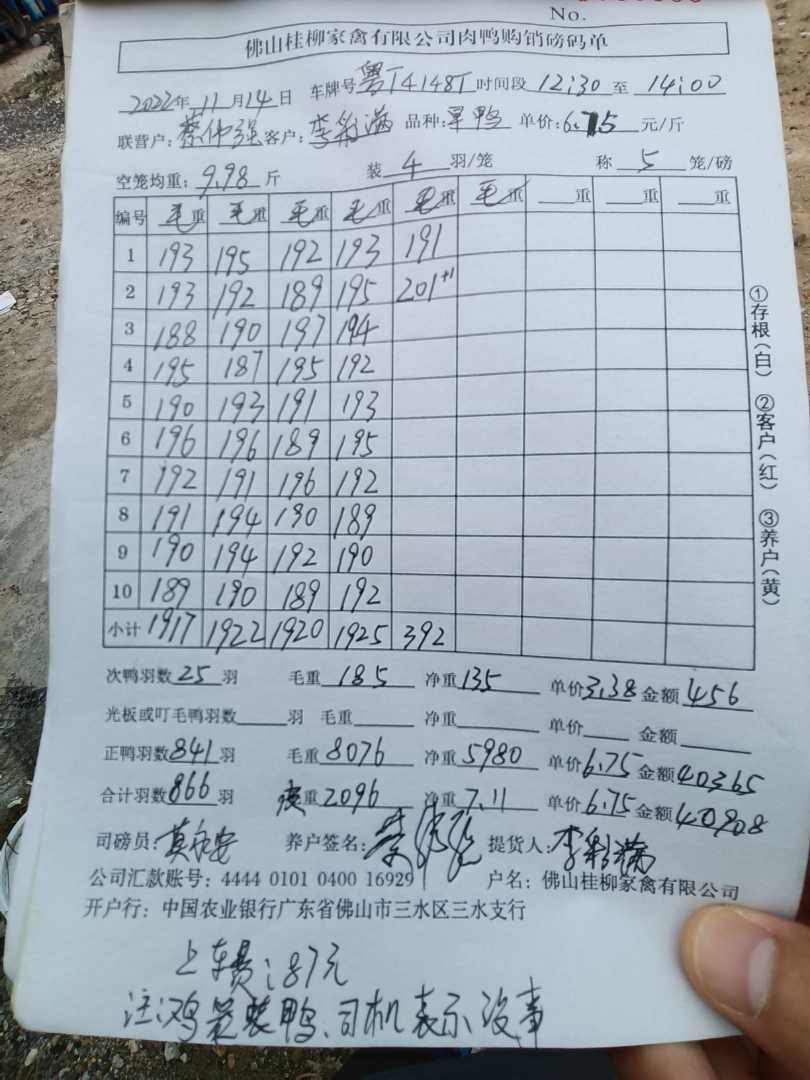 No.
佛山桂柳家禽有限公司肉鸭购销磅码单
2022年 11月14日 车牌号粤T4148T时间段 12:30 至 14:00
联营户: 蔡伟强客户: 李彩满 品种: 旱鸭 单价: 6.75 元/斤
空笼均重: 9.98 斤 装 4 羽/笼 称 5 笼/磅
编号 毛重 毛重 毛重 毛重 毛重 毛重 重 重 重
1 193 195 192 193 191
2 193 192 189 195 201+1
3 188 190 197 194
4 195 187 195 192
5 190 193 191 193
6 196 196 189 195
7 192 191 196 192
8 191 194 190 189
9 190 194 192 190
10 189 190 189 192
小计 1917 1922 1920 1925 392
次鸭羽数25羽 毛重 185 净重135 单价3.38金额456
光板或叮毛鸭羽数 羽 毛重 净重 单价 金额
正鸭羽数841羽 毛重8076 净重5980 单价6.75金额40365
合计羽数866羽 重2096 净重7.11 单价6.75金额40908
司磅员: 莫 安 养户签名: 提货人: 李彩满
公司汇款账号: 4444 0101 0400 16929 户名: 佛山桂柳家禽有限公司
开户行: 中国农业银行广东省佛山市三水区三水支行
上车费: 87元
注: 鸡笼装鸭、司机表示没事
①存根(白) ②客户(红) ③养户(黄)